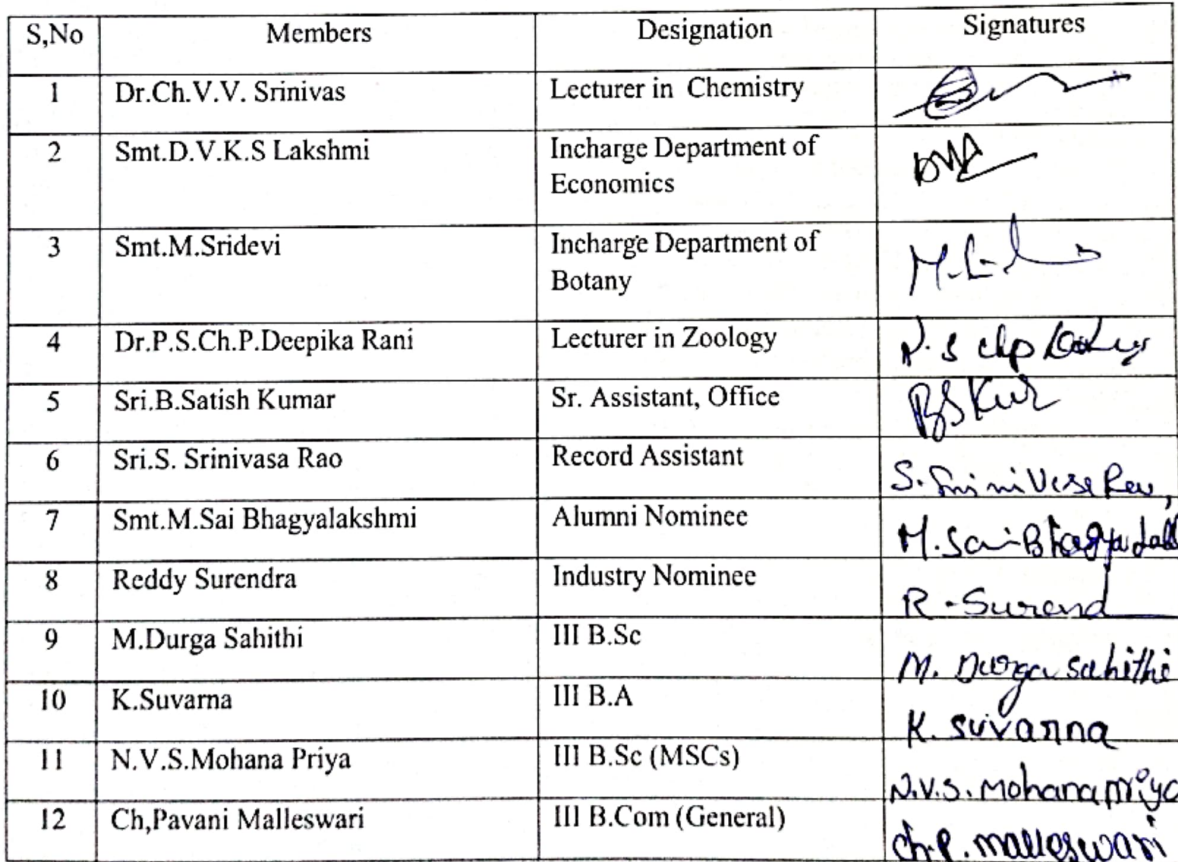 S,No Members Designation Signatures
1 Dr.Ch.V.V. Srinivas Lecturer in Chemistry
2 Smt.D.V.K.S Lakshmi Incharge Department of
Economics
3 Smt.M.Sridevi Incharge Department of
Botany
4 Dr.P.S.Ch.P.Deepika Rani Lecturer in Zoology
5 Sri.B.Satish Kumar Sr. Assistant, Office
6 Sri.S. Srinivasa Rao Record Assistant
7 Smt.M.Sai Bhagyalakshmi Alumni Nominee
8 Reddy Surendra Industry Nominee R. Surend
9 M.Durga Sahithi III B.Sc M. Durga sahithi
10 K.Suvarna III B.A K. suvarna
11 N.V.S.Mohana Priya III B.Sc (MSCs) N.V.S. Mohana priya
12 Ch,Pavani Malleswari III B.Com (General) ch.P. malleswari